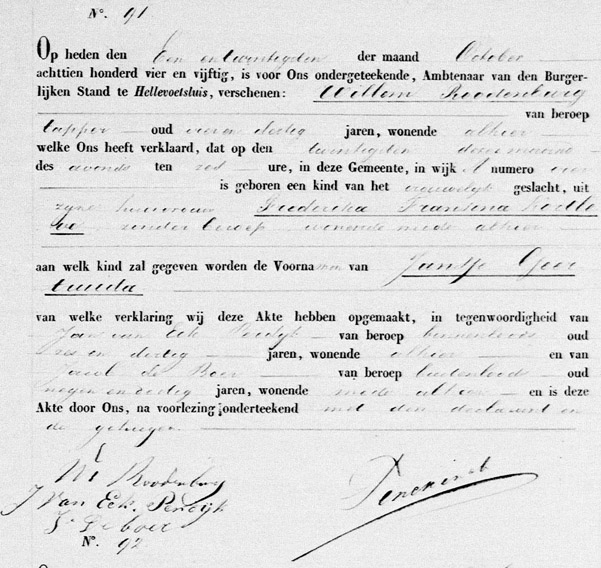 Nº. 91
Op heden den Een en twintigsten der maand October
achttien honderd vier en vijftig, is voor Ons ondergeteekende, Ambtenaar van den Burger-
lijken Stand te Hellevoetsluis, verschenen: Willem Roodenburg
van beroep
tapper oud vier en dertig jaren, wonende alhier
welke Ons heeft verklaard, dat op den twintigsten dezer maand
des avonds ten zes ure, in deze Gemeente, in wijk A numero
is geboren een kind van het vrouwelijk geslacht, uit
zijne huisvrouw Frederika Fransina
zonder beroep wonende mede alhier
aan welk kind zal gegeven worden de Voornamen van Jantje Geer
truida
van welke verklaring wij deze Akte hebben opgemaakt, in tegenwoordigheid van
Jan van Eck Pendijk van beroep binnenloods oud
zes en dertig jaren, wonende alhier en van
Jacob de Boer van beroep buitenloods oud
negen en dertig jaren, wonende mede alhier en is deze
Akte door Ons, na voorlezing onderteekend met den declarant en
de getuigen
W Roodenburg
J Van Eck. Pendijk
J. De boer
Nº. 92